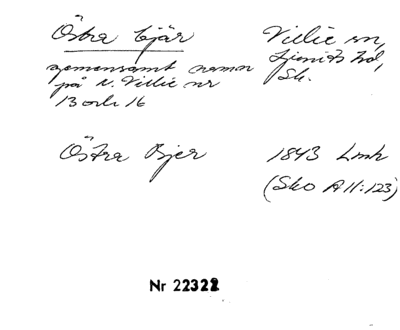 Östra Bjär
Villie sn,
Ljunits hd,
Sk.
gemensamt namn
på N. Villie nr
13 och 16
Östra Bjer
1843 Lmk
(Sko A 11:123)
Nr 22322